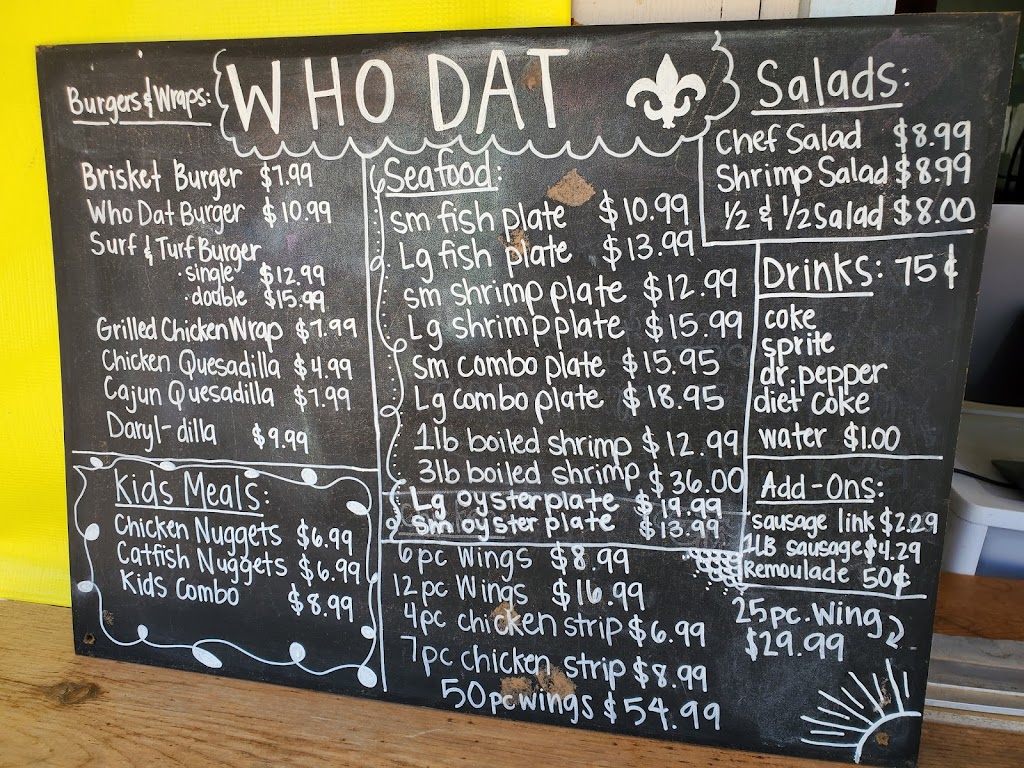 WHO DAT
Burgers & Wraps:
Brisket Burger $7.99
Who Dat Burger $10.99
Surf & Turf Burger
· single $12.99
· double $15.99
Grilled Chicken Wrap $7.99
Chicken Quesadilla $4.99
Cajun Quesadilla $7.99
Daryl-dilla $9.99
Kids Meals:
Chicken Nuggets $6.99
Catfish Nuggets $6.99
Kids Combo $8.99
Seafood:
sm fish plate $10.99
Lg fish plate $13.99
sm shrimp plate $12.99
Lg shrimp plate $15.99
sm combo plate $15.95
Lg combo plate $18.95
1lb boiled shrimp $12.99
3lb boiled shrimp $36.00
Lg oyster plate $19.99
sm oyster plate $13.99
6pc Wings $8.99
12pc Wings $16.99
4pc chicken strip $6.99
7pc chicken strip $8.99
50pc wings $54.99
Salads:
Chef Salad $8.99
Shrimp Salad $8.99
1/2 & 1/2 Salad $8.00
Drinks: 75¢
coke
sprite
dr. pepper
diet coke
water $1.00
Add-Ons:
sausage link $2.29
1LB sausage $4.29
Remoulade 50¢
25pc. wing
$29.99